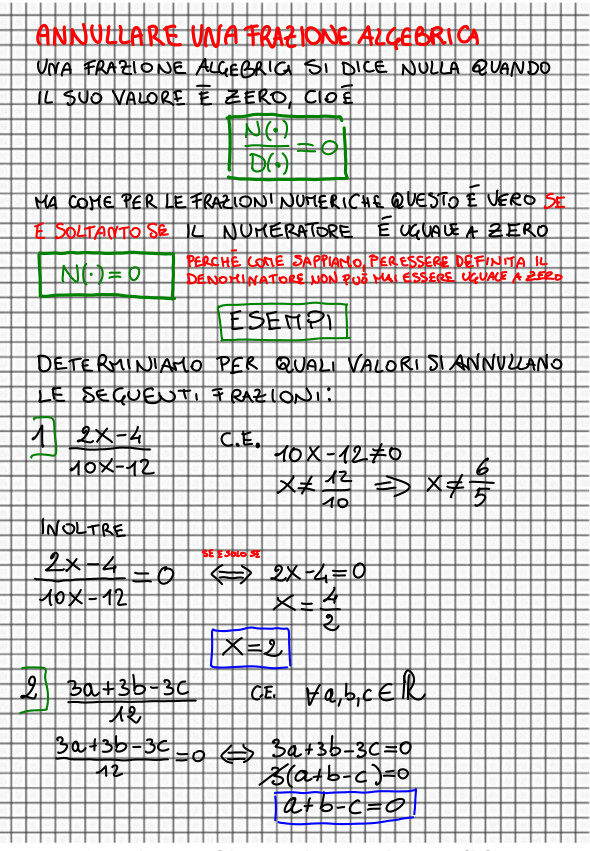 ANNULLARE UNA FRAZIONE ALGEBRICA
UNA FRAZIONE ALGEBRICA SI DICE NULLA QUANDO
IL SUO VALORE È ZERO, CIOÈ
N(·)/D(·) = 0
MA COME PER LE FRAZIONI NUMERICHE QUESTO È VERO SE
E SOLTANTO SE IL NUMERATORE È UGUALE A ZERO
N(·) = 0 PERCHÉ COME SAPPIAMO, PER ESSERE DEFINITA IL
DENOMINATORE NON PUÒ MAI ESSERE UGUALE A ZERO
ESEMPI
DETERMINIAMO PER QUALI VALORI SI ANNULLANO
LE SEGUENTI FRAZIONI:
1 (2x-4)/(10x-12) C.E. 10x-12≠0
x≠12/10 ⟹ x≠6/5
INOLTRE
(2x-4)/(10x-12) = 0 SE E SOLO SE ⟺ 2x-4=0
x=4/2
x=2
2 (3a+3b-3c)/12 CE. ∀a,b,c∈ℝ
(3a+3b-3c)/12 = 0 ⟺ 3a+3b-3c=0
3(a+b-c)=0
a+b-c=0